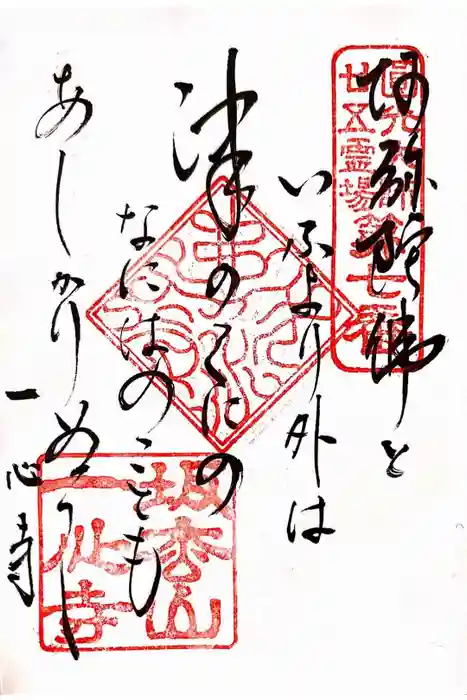 阿弥陀佛と
いふより外は
津のくにの
なにはのことも
あしかりぬべし
一心寺
圓光大師
廿五霊場第七番
坂松山
一心寺